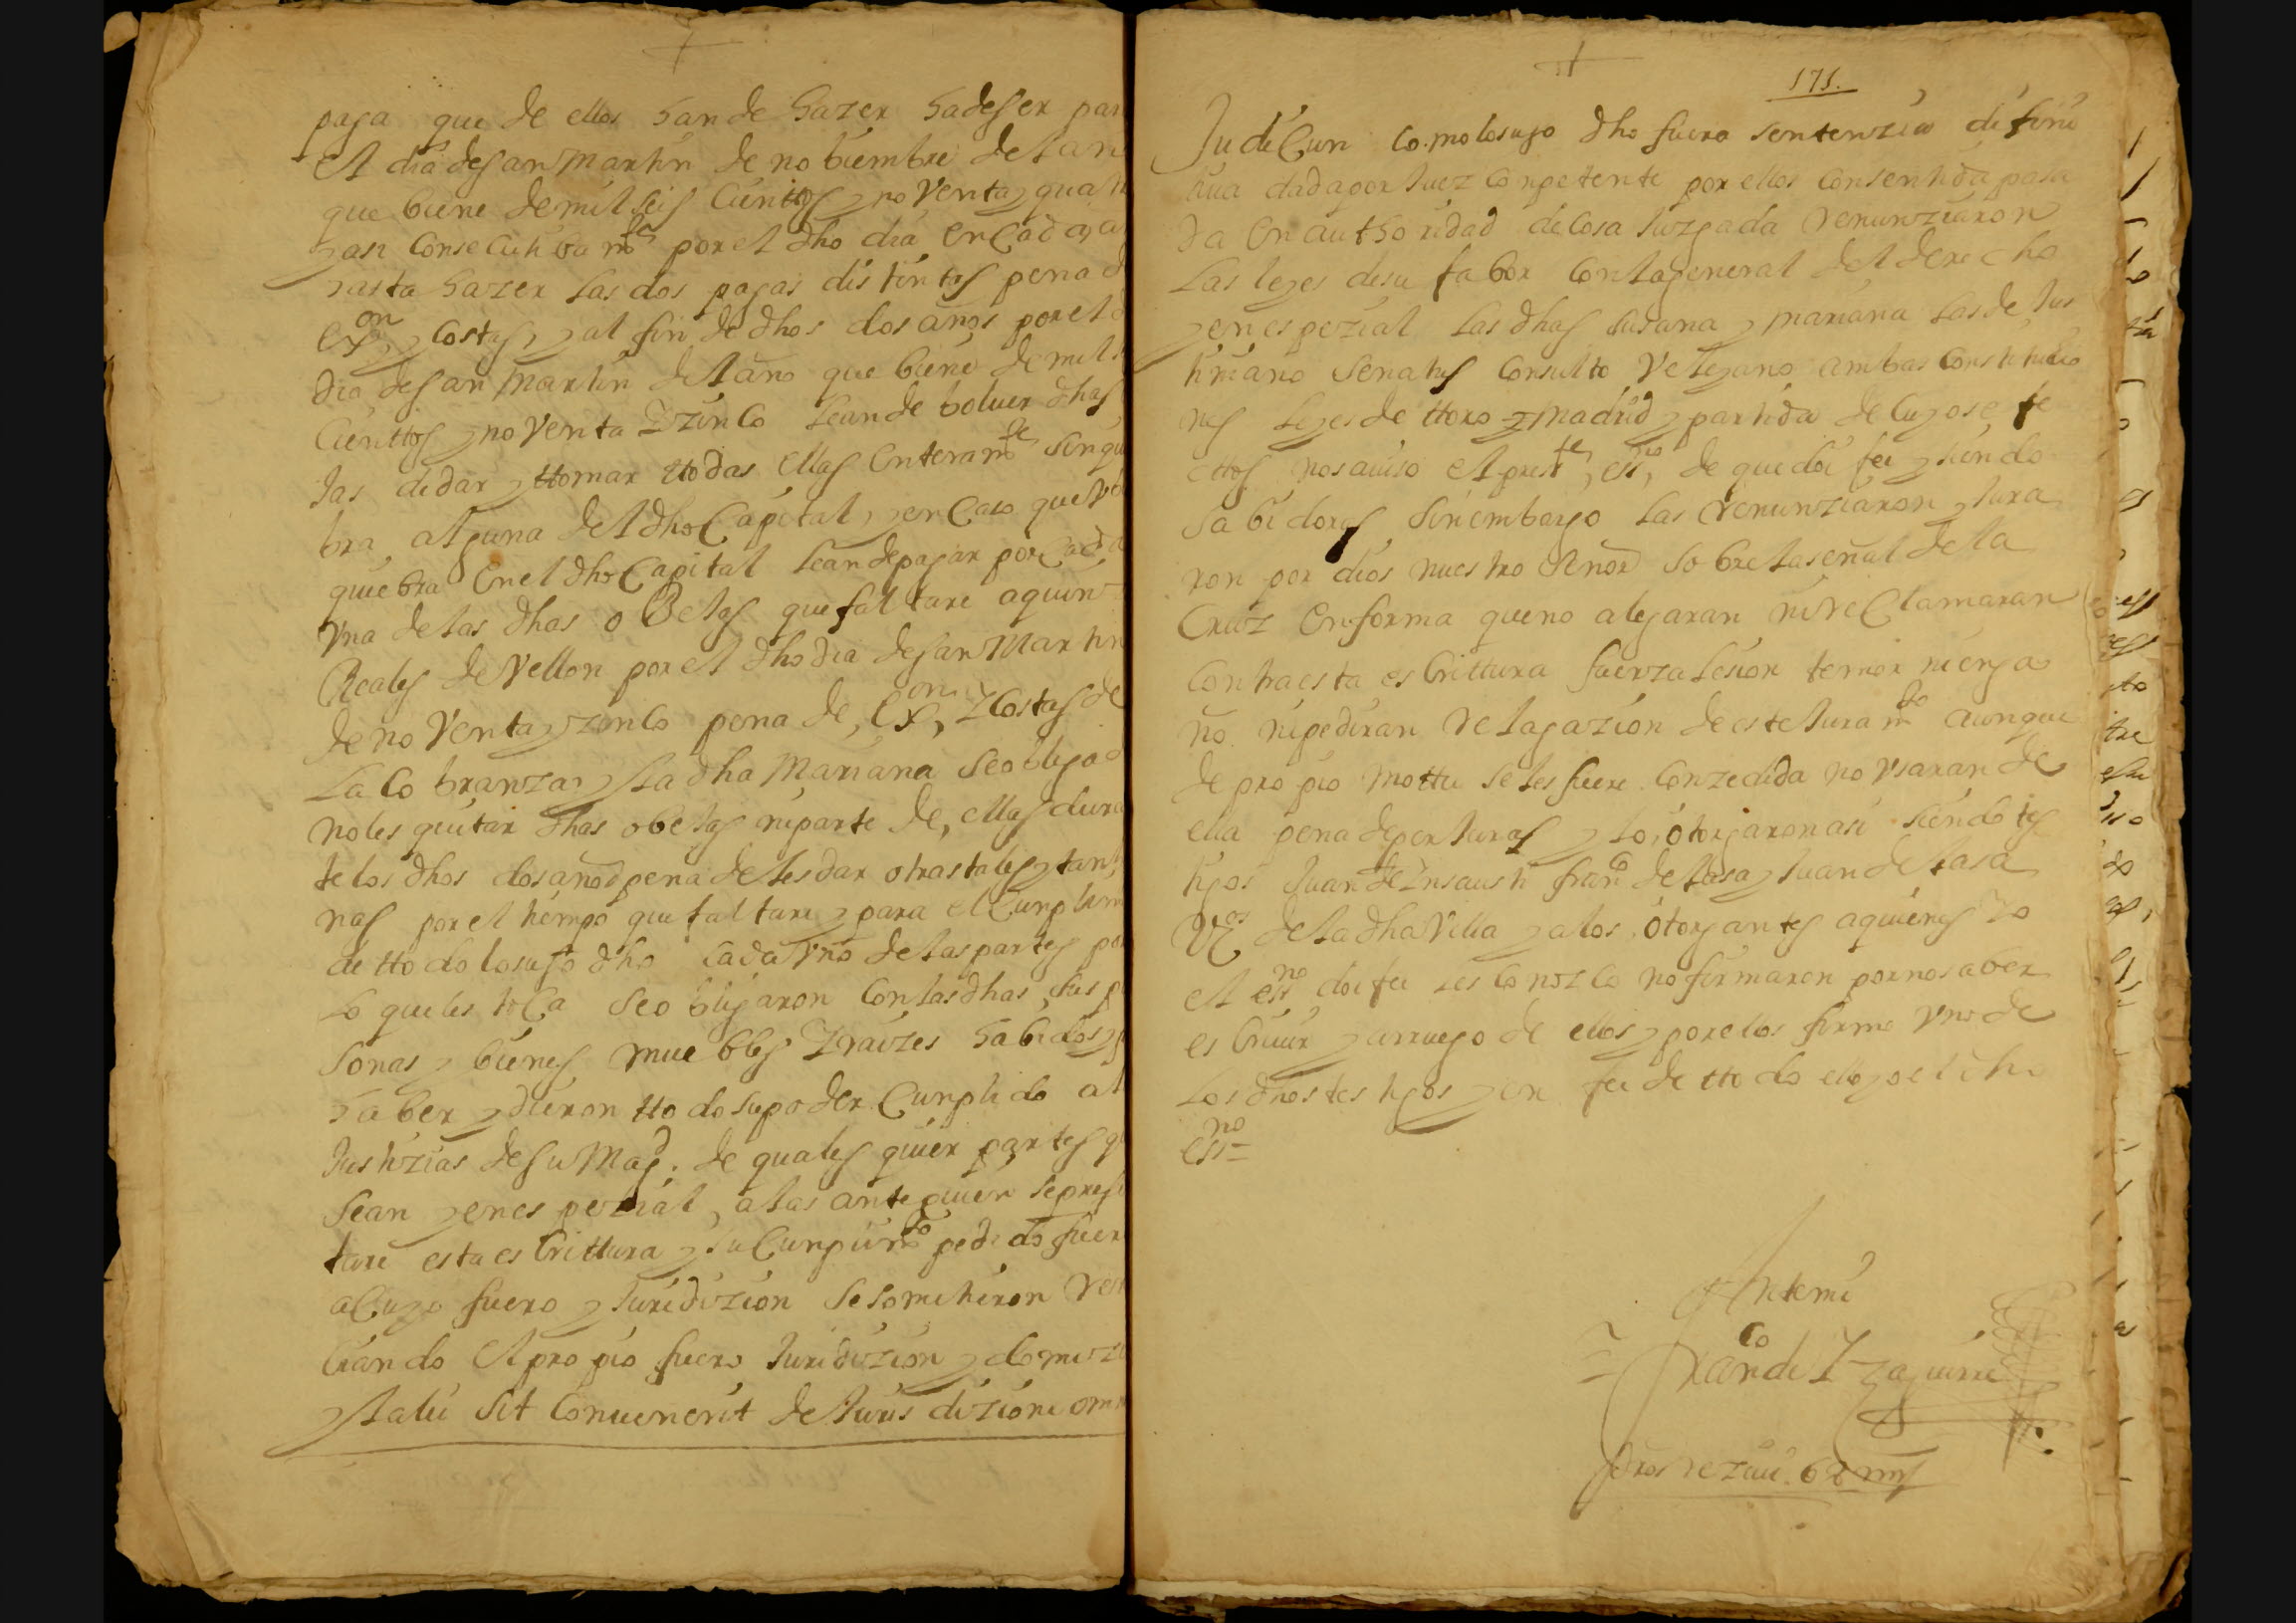 paga que de ellos han de hazer ha de ser par
el dia de san Martin de nobiembre del an
que biene de mil seis cienttos y noventa y quat
y asi consecutibamte por el dho dia en cada a
hasta hazer las dos pagas distintas pena d
exon y costas y al fin de dhos dos años por el d
dia de san Martin del año que biene de mil s
cienttos y noventa y zinco sean de boluer dhas
las de dar y ttomar ttodas ellas enteramte sin qu
bra alguna del dho Capital, y en caso que
quiebra en el dho Capital sean de pagar por cada
Vna de las dhas obejas que faltare a quinz
Reales de Vellon por el dho dia de san Martin
de noventa y zinco pena de exon y costas de
la cobranza y la dha Mariana se obligo
no les quitar dhas obejas ni parte de ellas dura
te los dhos dos años pena de les dar otras tales y tan
nas por el tiempo que faltare y para el cunplim
de ttodo lo suso dho cada Vno de las partes por
lo que les toca se obligaron con las dhas sus p
sonas y bienes muebles y raizes habidos y p
haber y dieron ttodo su poder cunplido a l
Justizias de su Magd. de quales quier partes q
sean y en espezial, a las ante quien se pres
tare esta escrittura y su cunplimto pedido fuer
a cuyo fuero y Juridizion se sometieron ren
ciando el propio fuero Juridizion y domizi
y la lei sit conuenerit de Juris dizione omn
171.
Judicun como lo suso dho fuera sentenzia difini
tiua dada por Juez conpetente por ellos consentida pasa
da en authoridad de cosa Juzgada renunziaron
las leyes de su fabor con la general del derecho
y en espezial las dhas Susana y Mariana las de Jus
tiniano Senatus consulto Velejano ambas constitucio
nes leyes de ttoro y Madrid y partida de cuyos efe
ttos nos auiso el preste, essno, de que doi fee y siendo
sabidoras sin embargo las renunziaron y Jura
ron por dios nuestro señor sobre la señal de la
Cruz en forma que no alegaran ni reclamaran
contra esta escrittura fuerza lesion temor ni enga
ño ni pediran relagazion de este Juramto aunque
de propio mottu se les fuere conzedida no vsaran de
ella pena de perjuras y lo otorgaron asi siendo tes
tigos Juan de Insausti franco de lasa y Juan de lasa
Vos de la dha Villa y a los otorgantes a quienes yo
el essno doi fee les conozco no firmaron por no saber
escriuir y a rruego de ellos y por ellos firmo Vno de
los dhos testigos y en fee de ttodo ello yo el dho
essno=
Ante mi
franco de Yzaguirre
dros reziui 62 ms